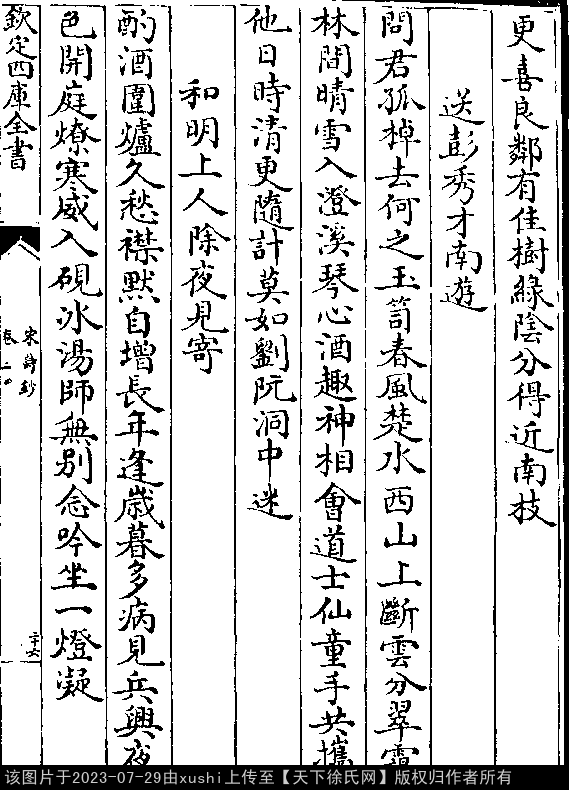 更喜良鄰有佳樹綠陰分得近南枝
送彭秀才南遊
問君孤棹去何之玉笥春風楚水西山上斷雲分翠靄
林間晴雪入澄溪琴心酒趣神相會道士仙童手共攜
他日時清更隨計莫如劉阮洞中迷
和明上人除夜見寄
酌酒圍爐久愁襟默自增長年逢歲暮多病見兵興夜
色開庭燎寒威入硯冰湯師無別念吟坐一燈凝
欽定四庫全書
宋詩鈔
卷一
二十六
该图片于2023-07-29由xushi上传至【天下徐氏网】版权归作者所有